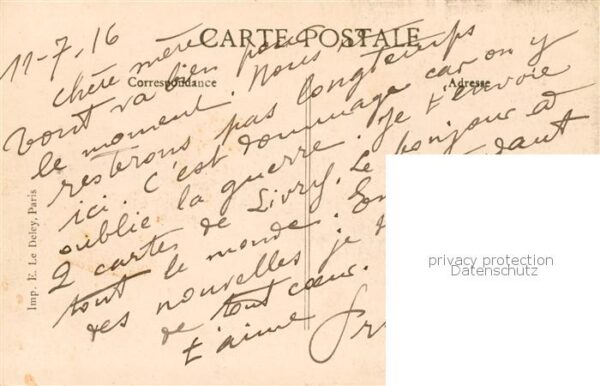 11-7.16
CARTE POSTALE
Correspondance
Adresse
Chère mère
tout va bien pour
le moment. Nous ne
resterons pas longtemps
ici. C'est dommage car on y
oublie la guerre. Je t'envoie
2 cartes de Livry. Le bonjour à
tout le monde. En
des nouvelles je t
de tout cœur.
t'aime
Imp. E. Le Deley, Paris
privacy protection
Datenschutz